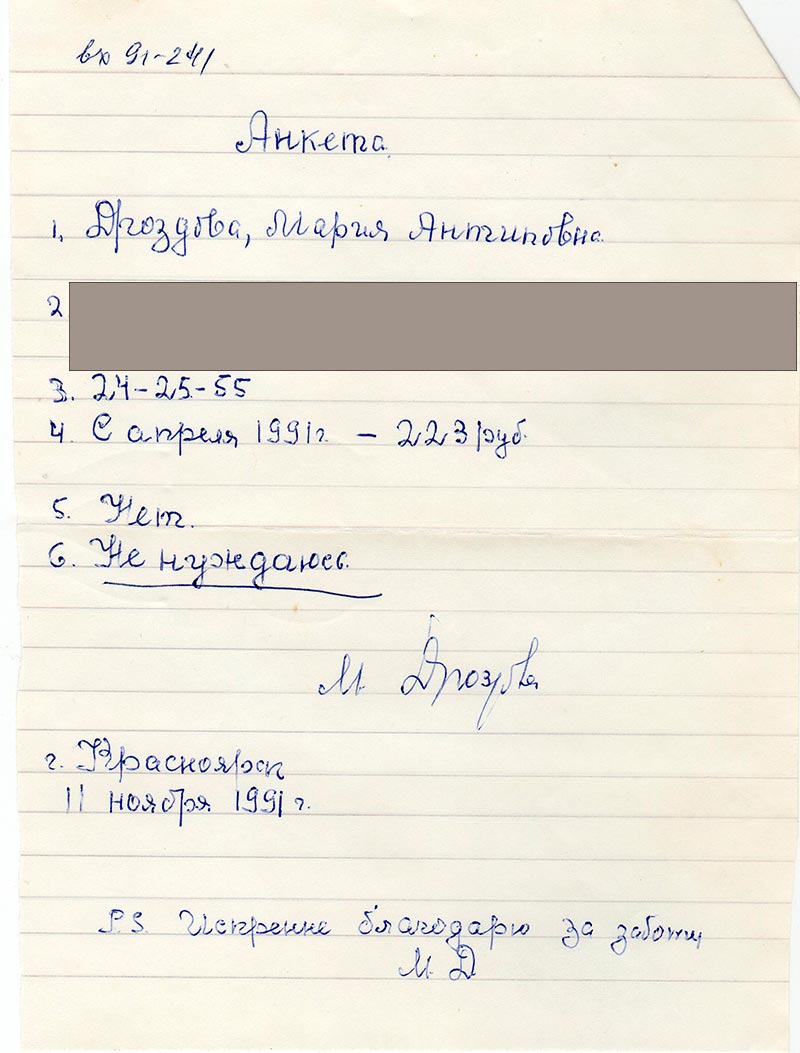 вх 91-241
Анкета.
1. Дроздова, Мария Антиповна.
2
3. 24-25-55
4. С апреля 1991г. – 223 руб.
5. Нет.
6. Не нуждаюсь.
М. Дроздова
г. Красноярск
11 ноября 1991 г.
P.S. Искренне благодарю за заботы
М. Д